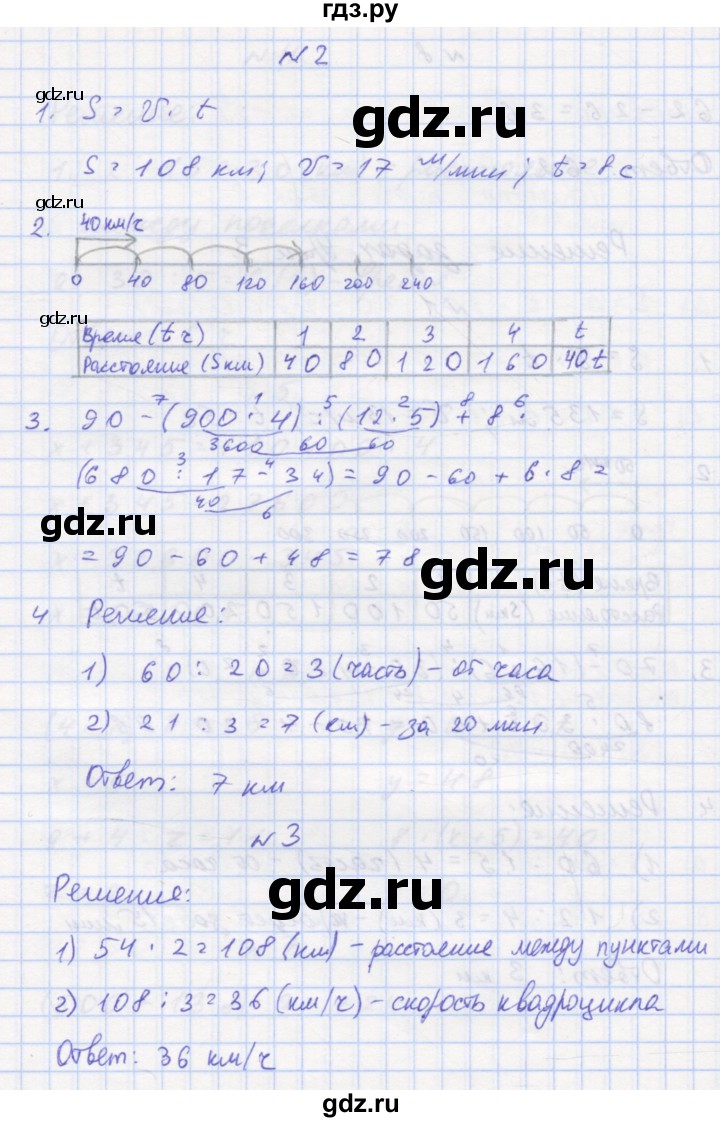 гдз.ру
№2
gdz.ru
1. S = V · t
gdz.ru
S = 108 км; V = 17 м/мин; t = 8 с
gdz.ru
2. 40 км/ч
0 40 80 120 160 200 240
gdz.ru
Время (t ч) 1 2 3 4 t
Расстояние (S км) 40 80 120 160 40t
7 1 5 2 8 6
3. 90 - (900 · 4) : (12 · 5) + 8 ·
3600 60 60
3 4
(680 : 17 - 34) = 90 - 60 + 6 · 8 =
40 6
gdz.ru
= 90 - 60 + 48 = 78
gdz.ru
4 Решение:
1) 60 : 20 = 3 (часть) - от часа
2) 21 : 3 = 7 (км) - за 20 мин
Ответ: 7 км
gdz.ru
№3
gdz.ru
Решение:
1) 54 · 2 = 108 (км) - расстояние между пунктами
gdz.ru
2) 108 : 3 = 36 (км/ч) - скорость квадроцикла
Ответ: 36 км/ч
gdz.ru
gdz.ru